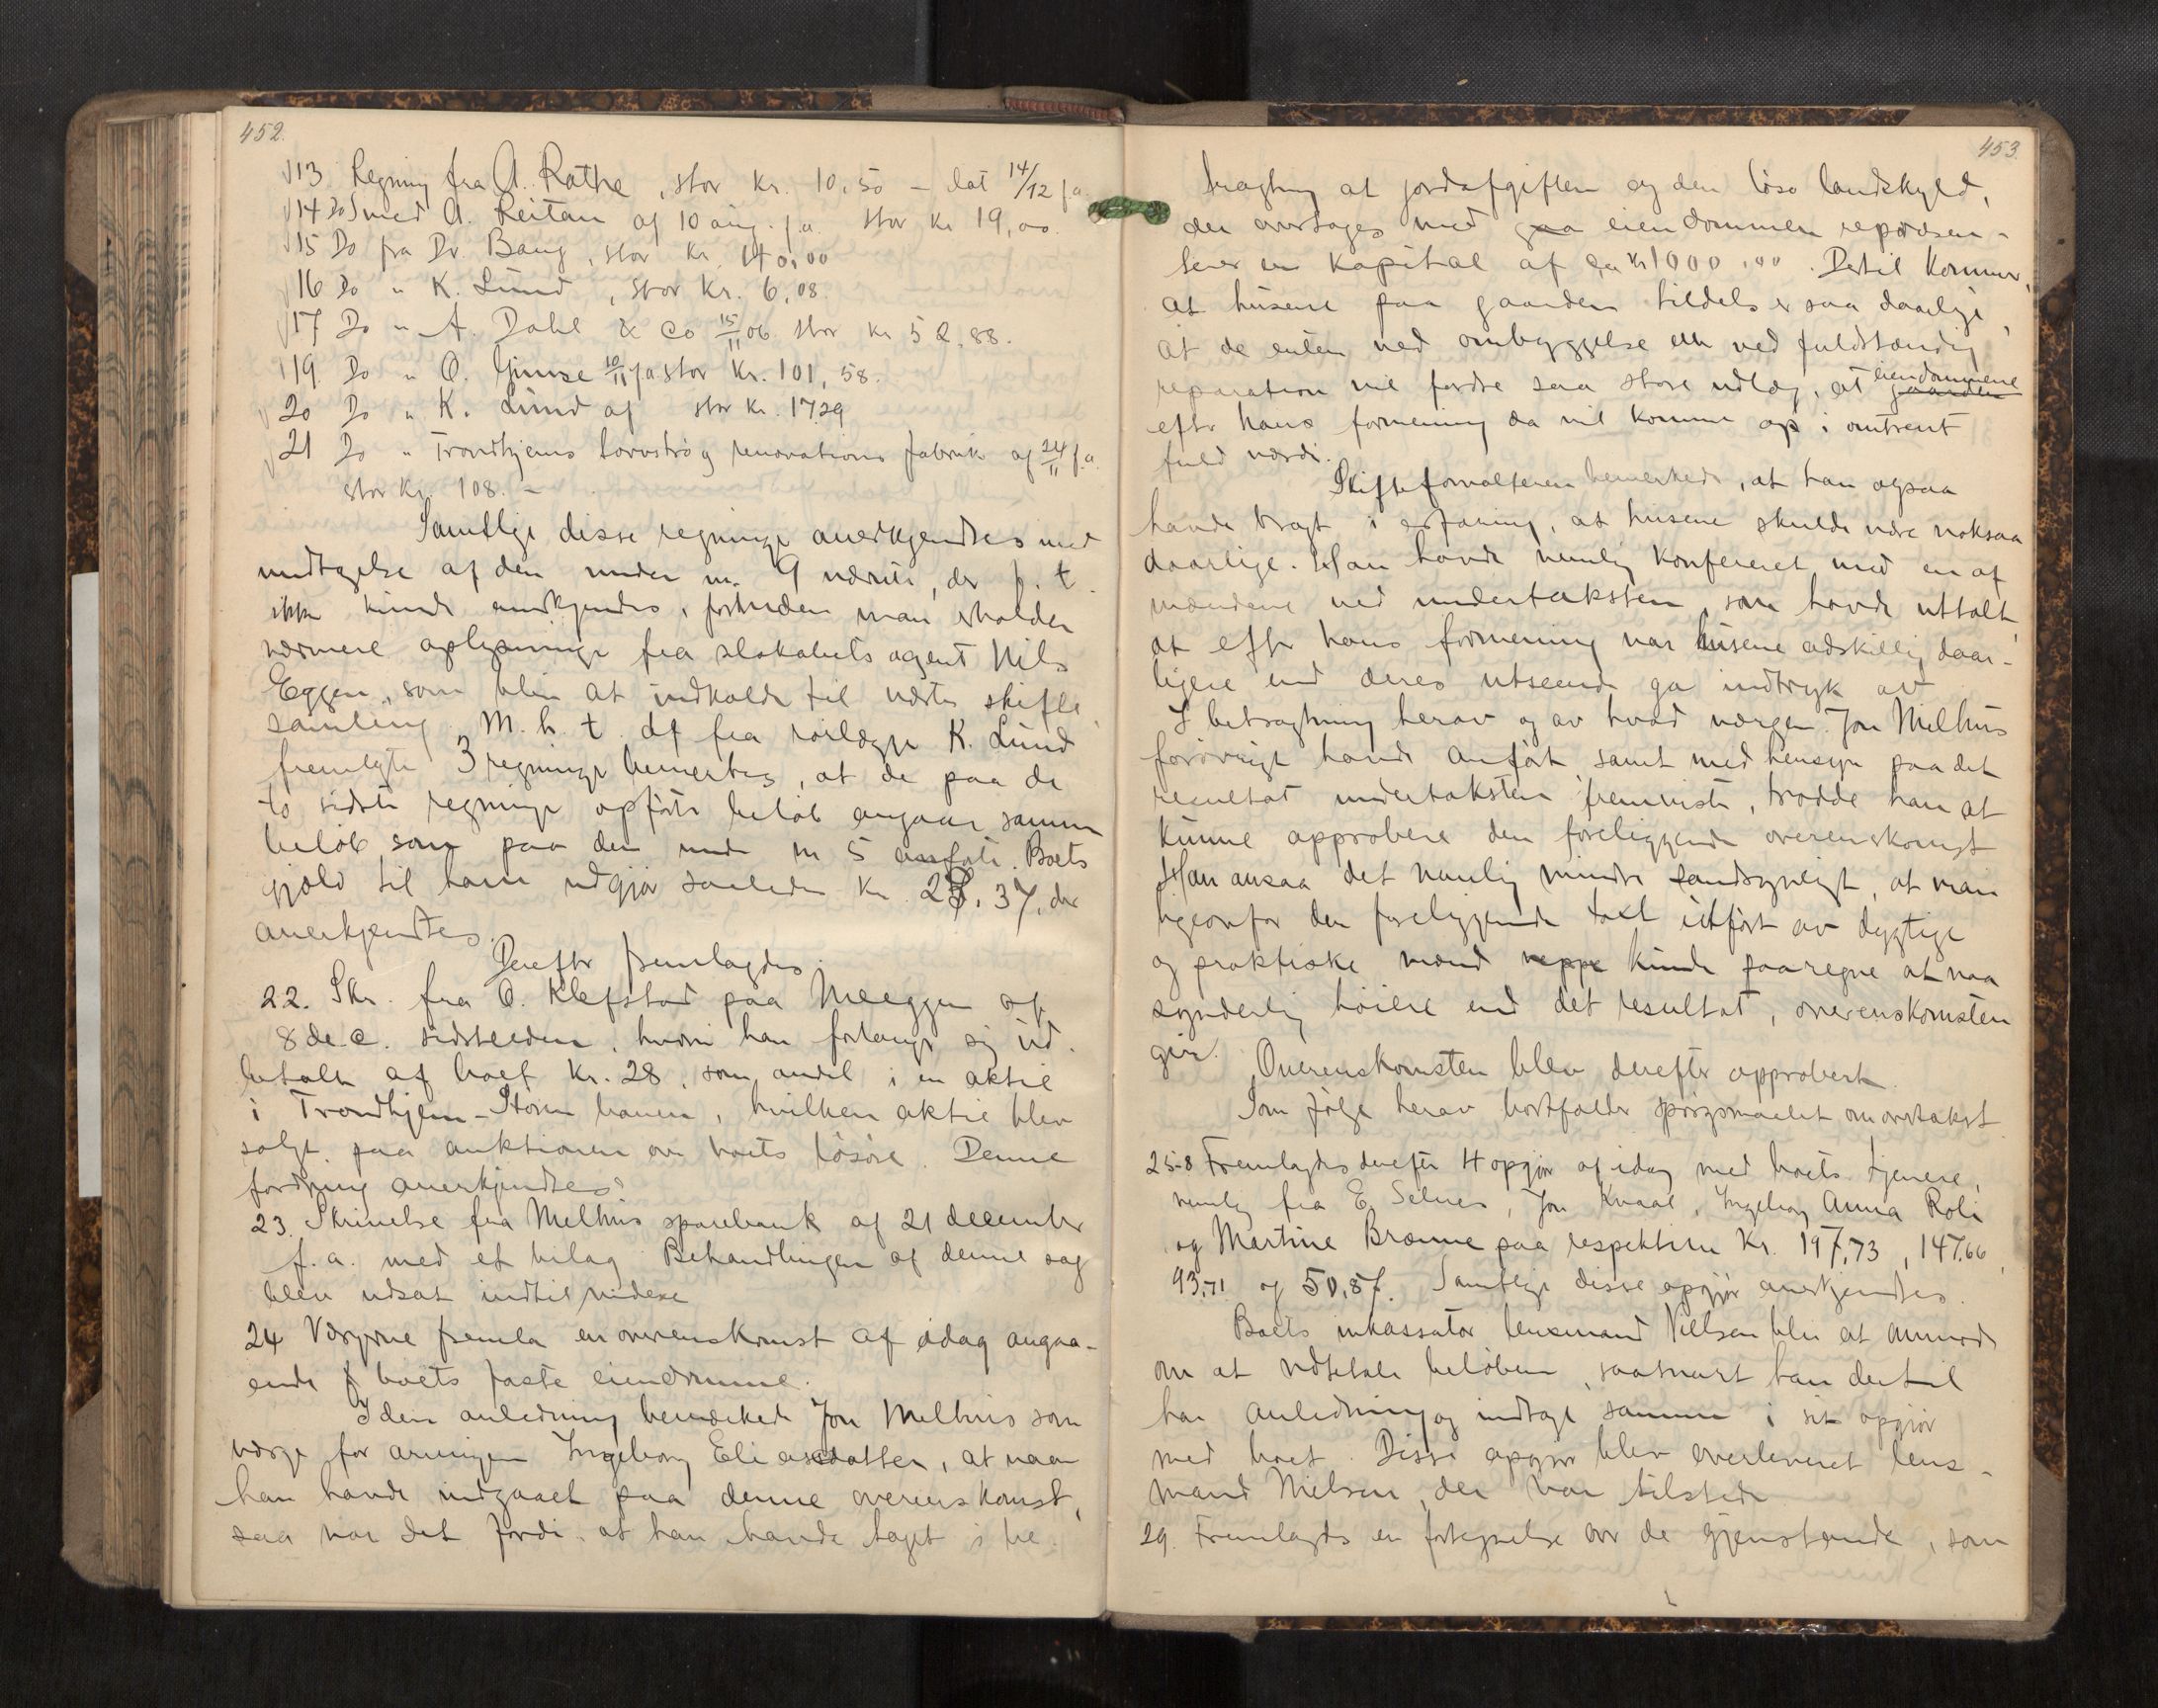 452.
13 Regning fra A. Rathe, stor kr. 10,50 – dat 14/12 f.a.
14 Do Smed A. Reitan af 10 aug. f.a. stor kr 19,00.
15 Do fra Dr. Bang, stor kr. 140,00
16 Do " K. Lund, stor kr. 6,08.
17 Do " A. Dahl & Co 15/11 06 stor kr 52,88.
19 Do " O. Gimse 10/11 f.a stor kr. 101,58.
20 Do " K. Lund af stor kr. 17,29
21 Do " Trondhjems torvströ og renovations fabrik af 24/11 f.a.
stor kr. 108. –
Samtlige disse regninger anerkjendtes med
undtagelse af den under nr. 9 nævnte, der p. t.
ikke kunde anerkjendes, forinden man erholder
nærmere oplysninger fra selskabets agent Nils
Eggen, som blir at indkalde til næste skifte
samling. M. h. t. de fra rørlægger K. Lund
fremlagte 3 regninger bemerkes, at de paa de
to sidste regninger opførte beløb angaar samme
beløb som paa den under nr 5 anførte. Boets
gjæld til ham udgjør saaledes kr. 23,37, der
anerkjendtes.
Derefter fremlagdes:
22. Skr. fra O. Klefstad paa Meeggen af
8 dec. sidstleden, hvori han forlanger sig ud-
betalt af boet kr. 28, som andel i en aktie
i Trondhjem-Støren banen, hvilken aktie blev
solgt paa auktionen over boets løsøre. Denne
fordring anerkjendtes.
23. Skrivelse fra Melhus sparebank af 21 december
f. a. med et bilag. Behandlingen af denne sag
blev udsat indtil videre
24 Værgerne fremla en overenskomst af idag angaa-
ende boets faste eiendomme.
I den anledning bemærkede Jon Melhus som
værge for arvingen Ingeborg Eliasdatter, at naar
han havde indgaaet paa denne overenskomst,
saa var det fordi at han havde taget i be-
453.
tragtning at jordafgiften og den løse landskyld,
der overtages med gaa eiendommen repræsen-
terer en kapital af ca kr 1000,00. Dertil kommer,
at husene paa gaarden tildels er saa daarlige,
at de enten ved ombyggelse eller ved fuldstændig
reparation vil fordre saa store udlæg, at gaarden eiendommene
efter hans formening da vil komme op i omtrent
fuld værdi.
Skifteforvalteren bemerkede, at han ogsaa
havde bragt i erfaring, at husene skulde være noksaa
daarlige. Han havde nemlig konfereret med en af
mændene ved undertaksten, som havde uttalt,
at efter hans formening var husene adskillig daar-
ligere end deres utseende ga indtryk av
I betragtning herav og av hvad værgen Jon Melhus
forøvrigt havde anført, samt med hensyn paa det
resultat undertaksten fremviste, trodde han at
kunne approbere den foreliggende overenskomst
Han ansaa det nemlig mindre sandsynligt, at man
ligeoverfor den foreliggende takst utført av dygtige
og praktiske mænd neppe kunde paaregne at naa
synderlig høiere end det resultat, overenskomsten
gir.
Overenskomsten blev derefter approbert.
Som følge herav bortfalder spørgsmaalet om overtakst.
25-8 Fremlagdes derefter 4 opgjør af idag med boets tjenere,
nemlig fra E Selnes, Jon Kvaal, Ingeborg Anna Roli
og Martine Brænne paa respektive kr. 197,73, 147,66,
93,71 og 50,87. Samtlige disse opgjør anerkjendtes.
Boets inkassator lensmand Nielsen blir at anmode
om at udbetale beløbene, saasnart han dertil
har anledning og indtage samme i sit opgjør
med boet. Disse opgjør blev overleveret lens-
mand Nielsen, der var tilstede
29. Fremlagdes en fortegnelse over de gjenstande, som